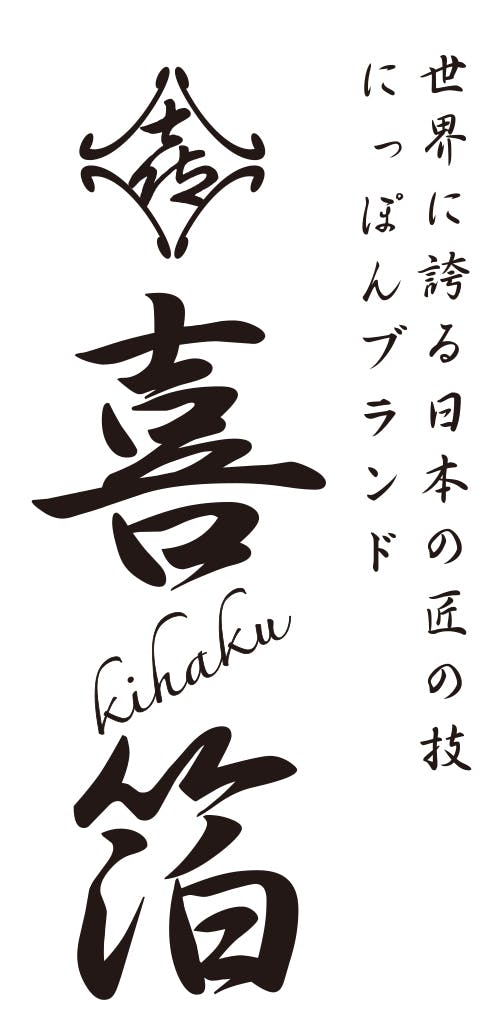 世界に誇る日本の匠の技
にっぽんブランド
喜箔
kihaku